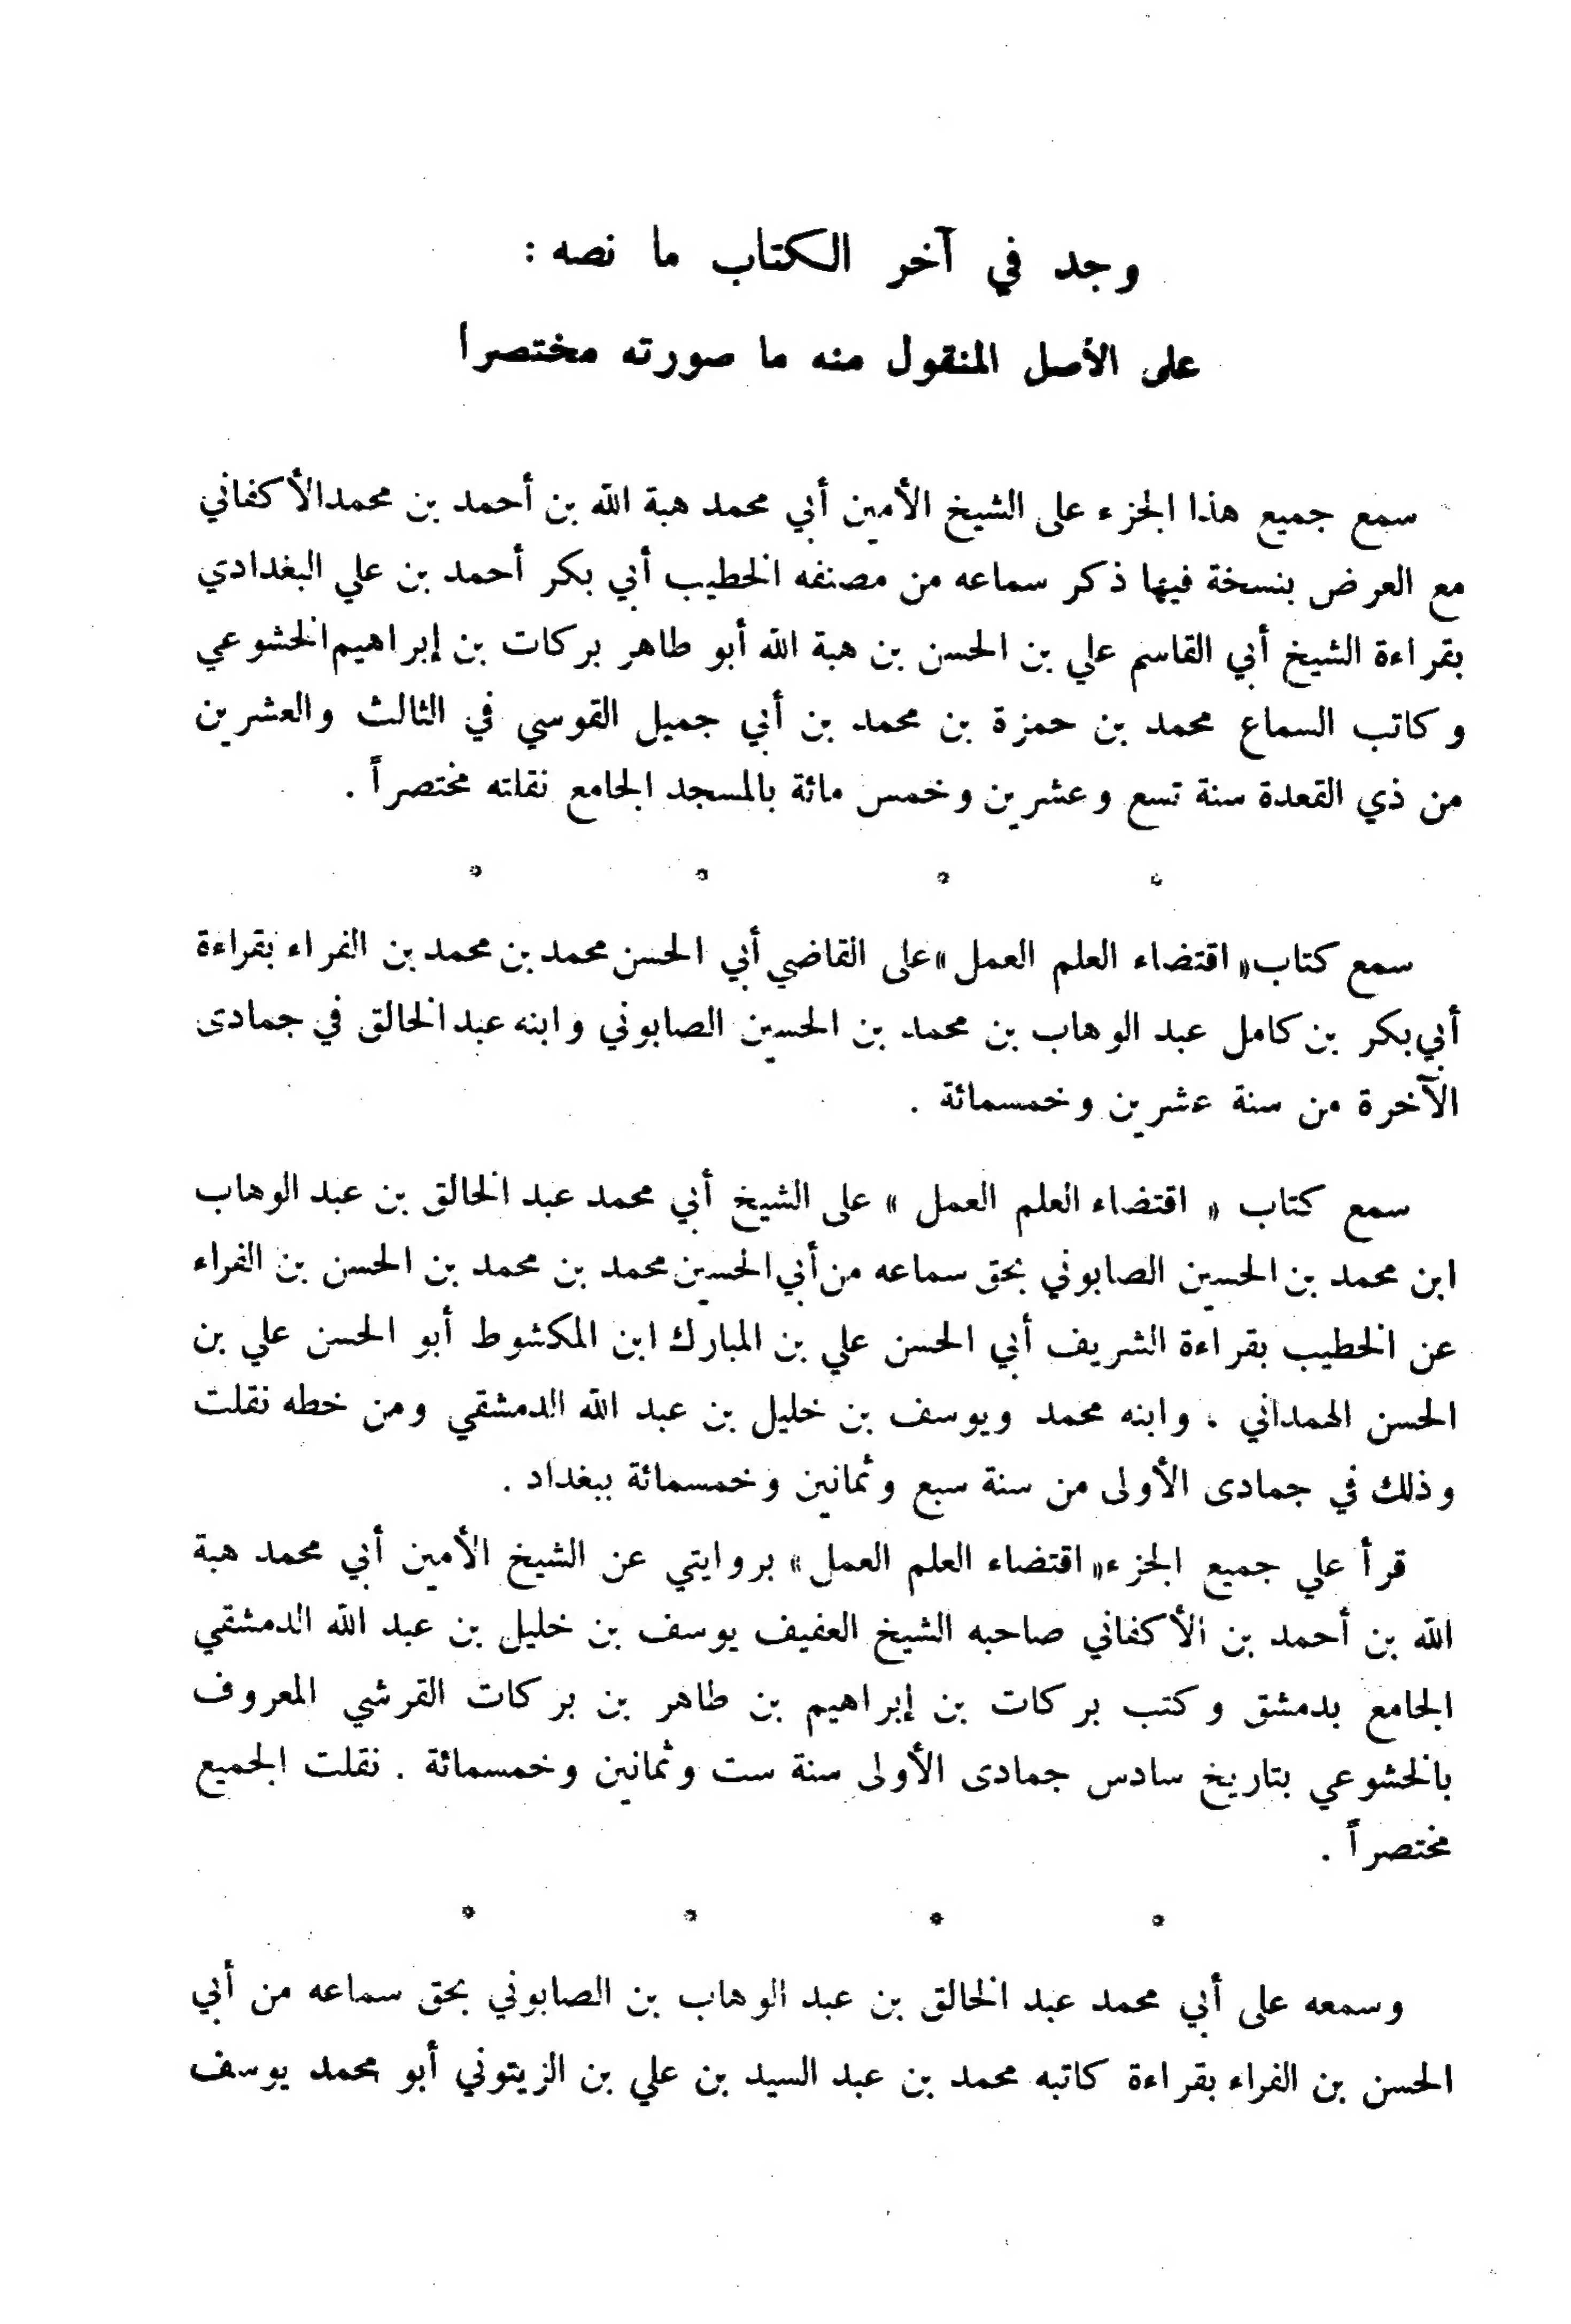 وجد في آخر الكتاب ما نصه :
على الأصل المنقول منه ما صورته مختصرا
سمع جميع هذا الجزء على الشيخ الأمين أبي محمد هبة الله بن أحمد بن محمد الأكفاني
مع العرض بنسخة فيها ذكر سماعه من مصنفه الخطيب أبي بكر أحمد بن علي البغدادي
بقراءة الشيخ أبي القاسم علي بن الحسن بن هبة الله أبو طاهر بركات بن إبراهيم الخشوعي
وكاتب السماع محمد بن حمزة بن محمد بن أبي جميل القوسي في الثالث والعشرين
من ذي القعدة سنة تسع وعشرين وخمس مائة بالمسجد الجامع نقلته مختصراً .
* * * *
سمع كتاب « اقتضاء العلم العمل » على القاضي أبي الحسن محمد بن محمد بن الفراء بقراءة
أبي بكر بن كامل عبد الوهاب بن محمد بن الحسين الصابوني وابنه عبد الخالق في جمادى
الآخرة من سنة عشرين وخمسمائة .
سمع كتاب « اقتضاء العلم العمل » على الشيخ أبي محمد عبد الخالق بن عبد الوهاب
ابن محمد بن الحسين الصابوني بحق سماعه من أبي الحسين محمد بن محمد بن الحسن بن الفراء
عن الخطيب بقراءة الشريف أبي الحسن علي بن المبارك ابن المكشوط أبو الحسن علي بن
الحسن الهمداني ، وابنه محمد ويوسف بن خليل بن عبد الله الدمشقي ومن خطه نقلت
وذلك في جمادى الأولى من سنة سبع وثمانين وخمسمائة ببغداد .
قرأ علي جميع الجزء « اقتضاء العلم العمل » بروايتي عن الشيخ الأمين أبي محمد هبة
الله بن أحمد بن الأكفاني صاحبه الشيخ العفيف يوسف بن خليل بن عبد الله الدمشقي
الجامع بدمشق وكتب بركات بن إبراهيم بن طاهر بن بركات القرشي المعروف
بالخشوعي بتاريخ سادس جمادى الأولى سنة ست وثمانين وخمسمائة . نقلت الجميع
مختصراً .
* * * *
وسمعه على أبي محمد عبد الخالق بن عبد الوهاب بن الصابوني بحق سماعه من أبي
الحسن بن الفراء بقراءة كاتبه محمد بن عبد السيد بن علي بن الزيتوني أبو محمد يوسف